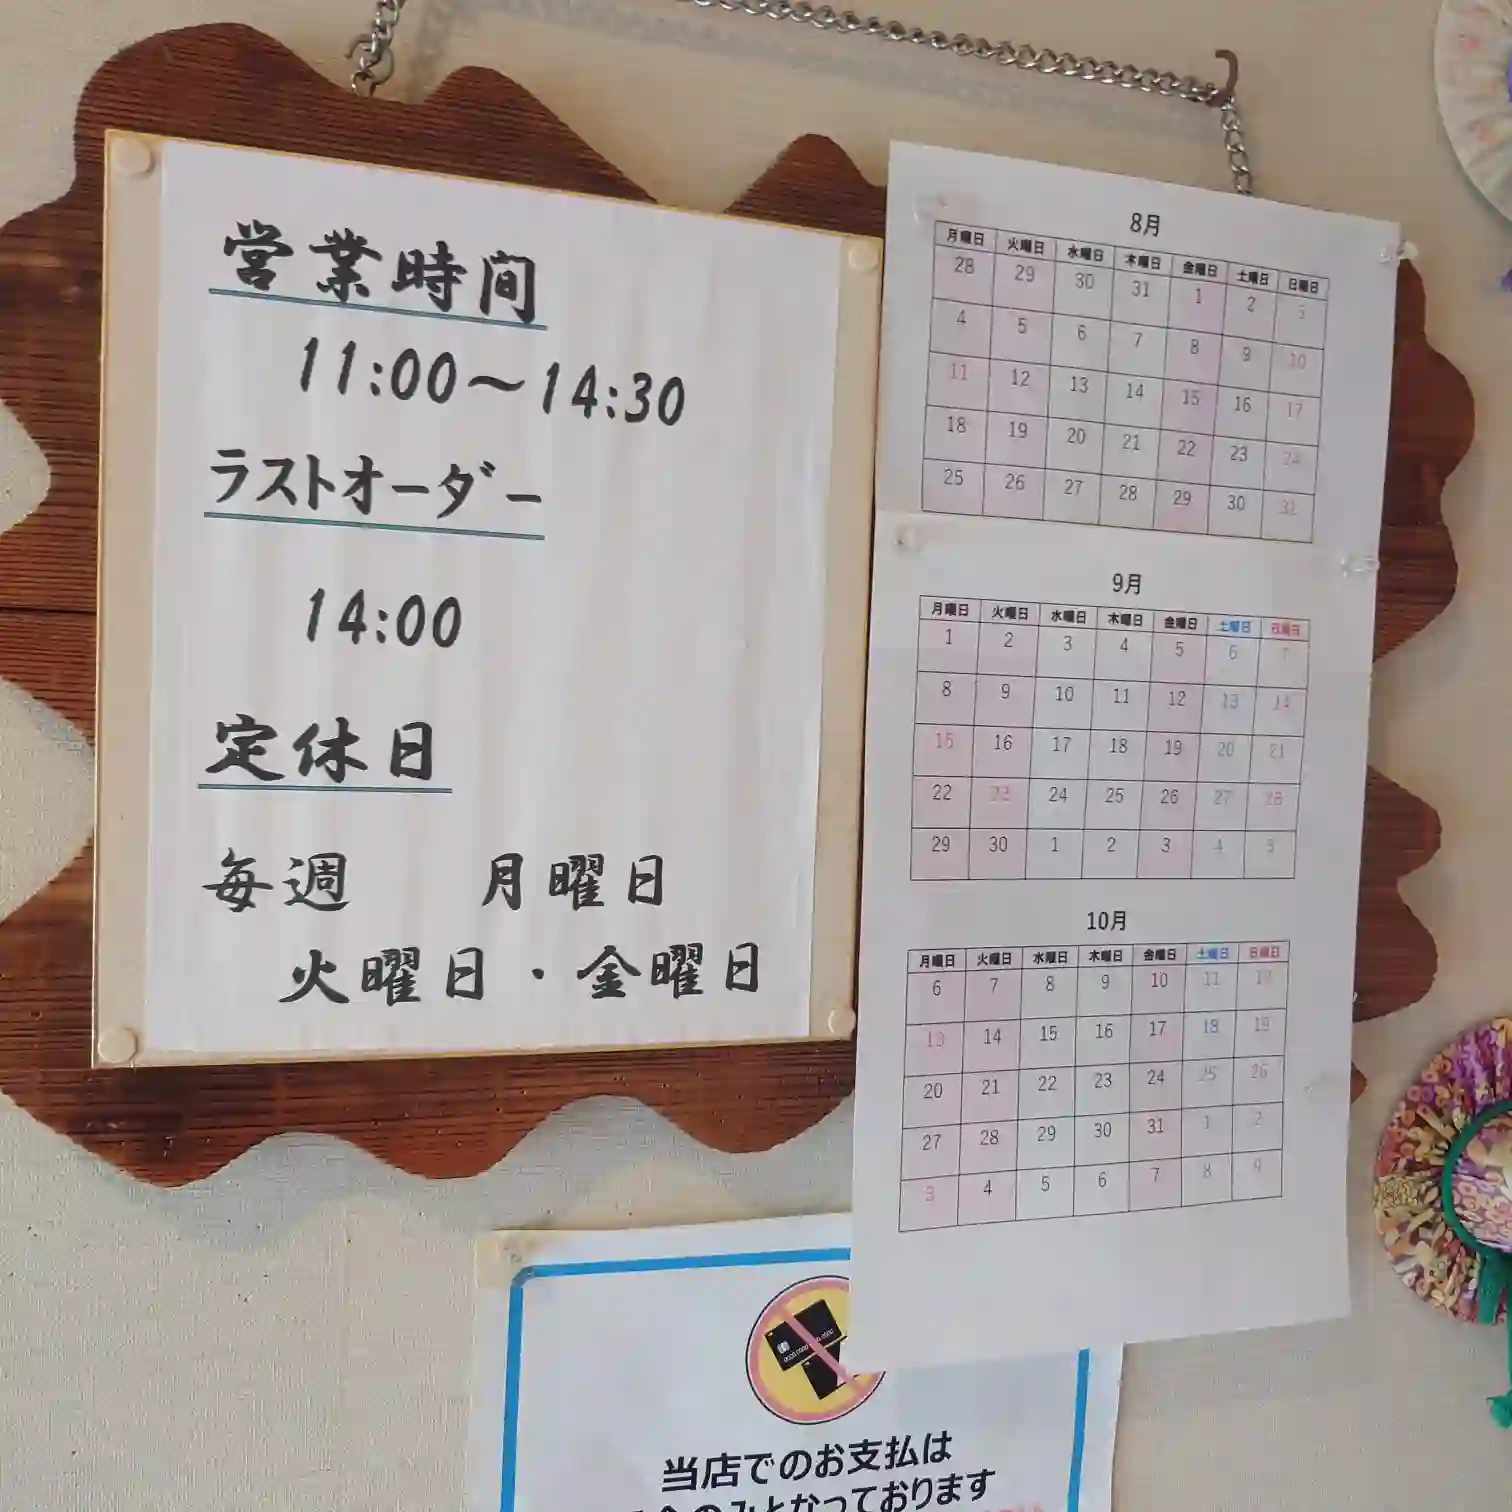 営業時間
11:00～14:30
ラストオーダー
14:00
定休日
毎週 月曜日
火曜日・金曜日
8月
月曜日 火曜日 水曜日 木曜日 金曜日 土曜日 日曜日
28 29 30 31 1 2 3
4 5 6 7 8 9 10
11 12 13 14 15 16 17
18 19 20 21 22 23 24
25 26 27 28 29 30 31
9月
月曜日 火曜日 水曜日 木曜日 金曜日 土曜日 日曜日
1 2 3 4 5 6 7
8 9 10 11 12 13 14
15 16 17 18 19 20 21
22 23 24 25 26 27 28
29 30 1 2 3 4 5
10月
月曜日 火曜日 水曜日 木曜日 金曜日 土曜日 日曜日
6 7 8 9 10 11 12
13 14 15 16 17 18 19
20 21 22 23 24 25 26
27 28 29 30 31 1 2
3 4 5 6 7 8 9
当店でのお支払は
のみとなっております